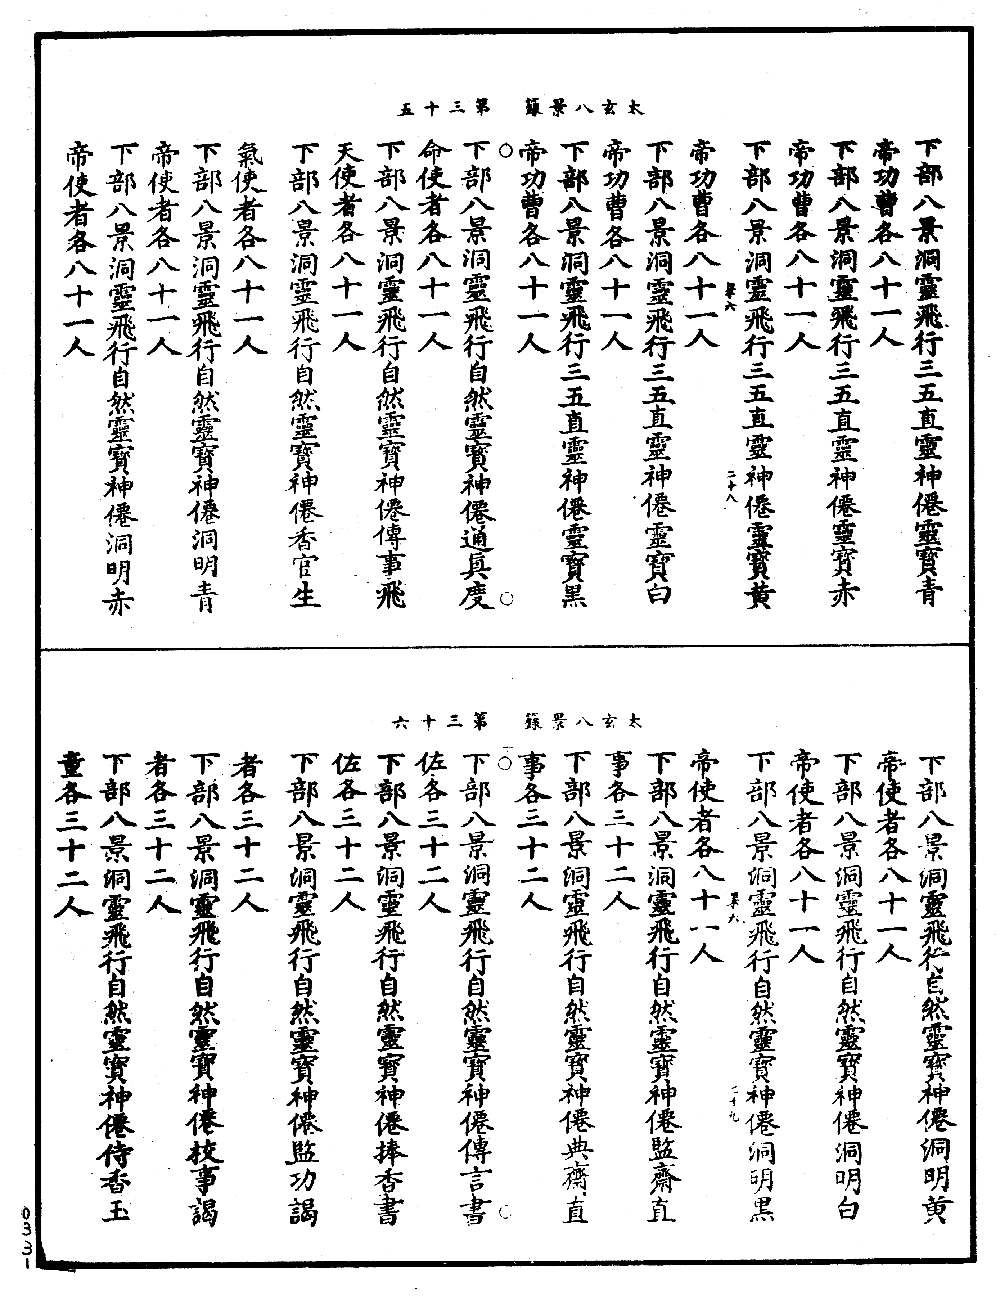 太玄八景籙　第三十五
下部八景洞靈飛行三五直靈神僊靈寶青
帝功曹各八十一人
下部八景洞靈飛行三五直靈神僊靈寶赤
帝功曹各八十一人
下部八景洞靈飛行三五直靈神僊靈寶黃
二十八
帝功曹各八十一人
下部八景洞靈飛行三五直靈神僊靈寶白
帝功曹各八十一人
下部八景洞靈飛行三五直靈神僊靈寶黑
帝功曹各八十一人
下部八景洞靈飛行自然靈寶神僊通真度
命使者各八十一人
下部八景洞靈飛行自然靈寶神僊傳事飛
天使者各八十一人
下部八景洞靈飛行自然靈寶神僊香官生
氣使者各八十一人
下部八景洞靈飛行自然靈寶神僊洞明青
帝使者各八十一人
下部八景洞靈飛行自然靈寶神僊洞明赤
帝使者各八十一人
太玄八景籙　第三十六
下部八景洞靈飛行自然靈寶神僊洞明黃
帝使者各八十一人
下部八景洞靈飛行自然靈寶神僊洞明白
帝使者各八十一人
下部八景洞靈飛行自然靈寶神僊洞明黑
二十九
帝使者各八十一人
下部八景洞靈飛行自然靈寶神僊監齋直
事各三十二人
下部八景洞靈飛行自然靈寶神僊典齋直
事各三十二人
下部八景洞靈飛行自然靈寶神僊傳言書
佐各三十二人
下部八景洞靈飛行自然靈寶神僊捧香書
佐各三十二人
下部八景洞靈飛行自然靈寶神僊監功謁
者各三十二人
下部八景洞靈飛行自然靈寶神僊校事謁
者各三十二人
下部八景洞靈飛行自然靈寶神僊侍香玉
童各三十二人
0331